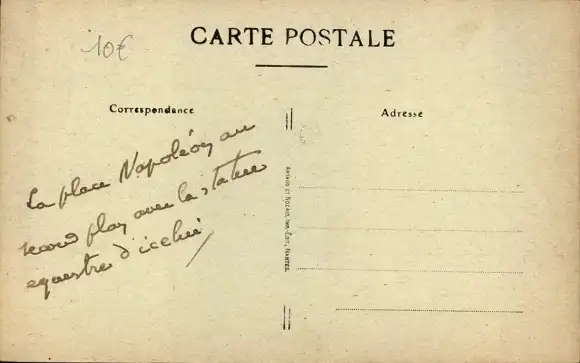 10€
CARTE POSTALE
Correspondance
Adresse
La place Napoléon au
second plan avec la statue
equestre d'icelui
ARTAUD ET NOZAIS, IMP.-ÉDIT., NANTES